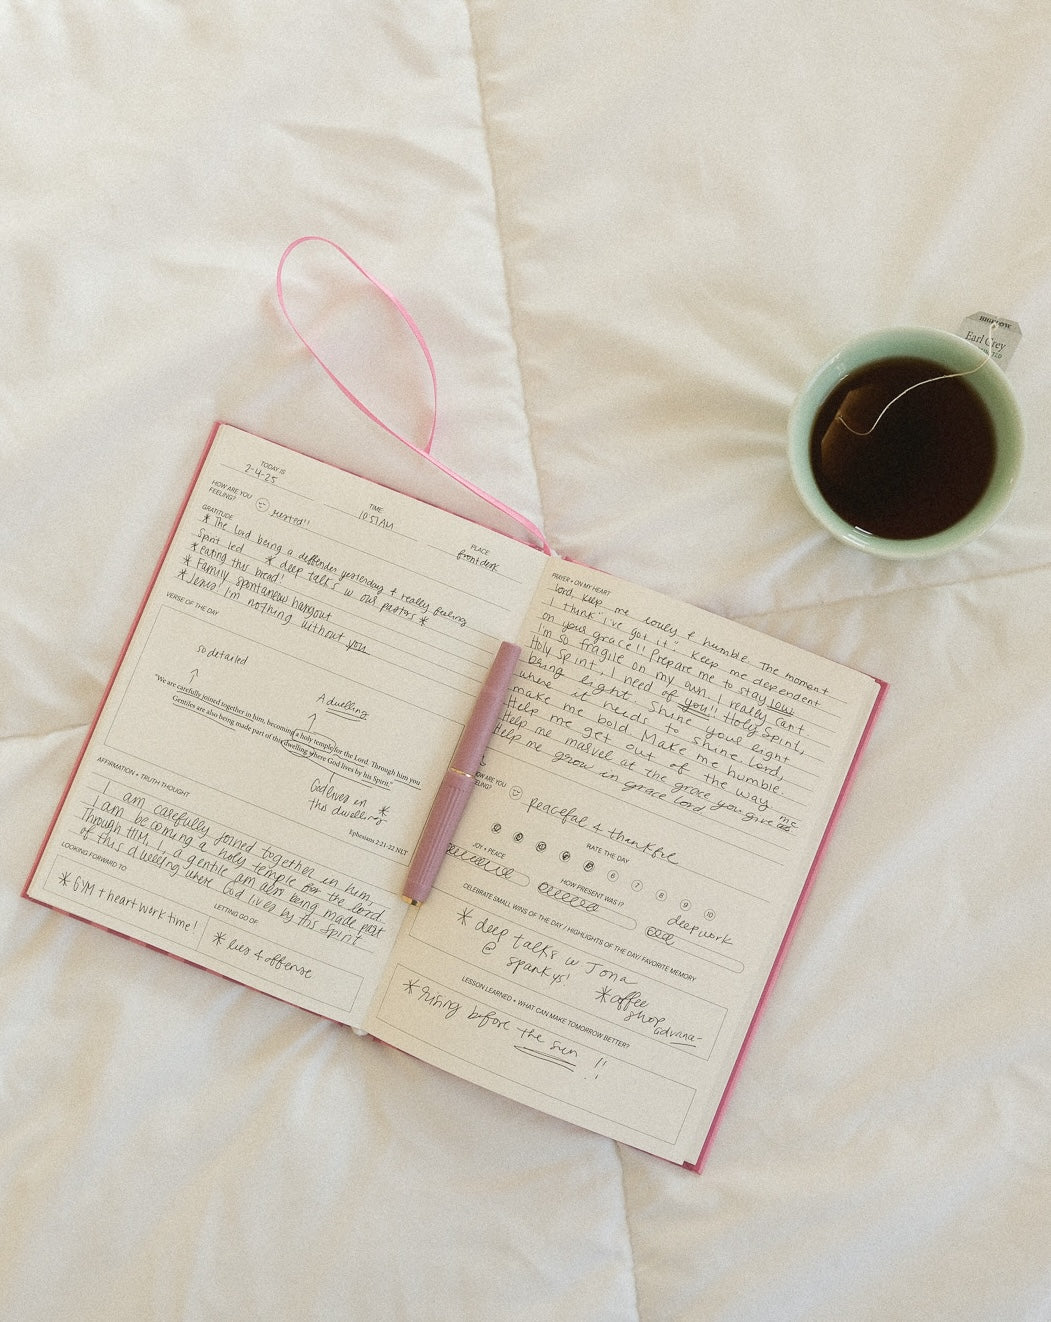 TODAY IS
2-4-25
TIME
10:51AM
PLACE
front desk
HOW ARE YOU
FEELING?
rested!!
GRATITUDE
* The Lord being a defender yesterday + really feeling
Spirit led * deep talks w our pastors *
* eating this bread!
* Family spontanew hangout
* Jesus! I'm nothing without you
VERSE OF THE DAY
so detailed
A dwelling
"We are carefully joined together in him, becoming a holy temple for the Lord. Through him you
Gentiles are also being made part of this dwelling where God lives by his Spirit."
God lives in *
this dwelling
Ephesians 2:21-22 NLT
AFFIRMATION + TRUTH THOUGHT
I am carefully joined together in him,
I am becoming a holy temple for the Lord.
Through HIM, I, a gentile am also being made part
of this dwelling where God lives by His Spirit
LOOKING FORWARD TO
* GYM + heart work time!
LETTING GO OF
* lies & offense
PRAYER + ON MY HEART
Lord, keep me lowly & humble. The moment
I think "i've got it". Keep me dependent
on your grace!! Prepare me to stay low
I'm so fragile on my own. I really can't
Holy Spirit, I need of you!! Holy Spirit,
being light. Shine your light
where it needs to shine Lord,
make me bold. Make me humble.
Help me get out of the way
Help me marvel at the grace you give me
Help me grow in grace Lord
HOW ARE YOU
FEELING?
peaceful & thankful
RATE THE DAY
6 7 8 9 10
JOY + PEACE
HOW PRESENT WAS I?
deep work
CELEBRATE SMALL WINS OF THE DAY / HIGHLIGHTS OF THE DAY/ FAVORITE MEMORY
* deep talks w Jona
@ spankys!
* coffee
shop
LESSON LEARNED + WHAT CAN MAKE TOMORROW BETTER?
* rising before the sun !!
BIGELOW
Earl Grey